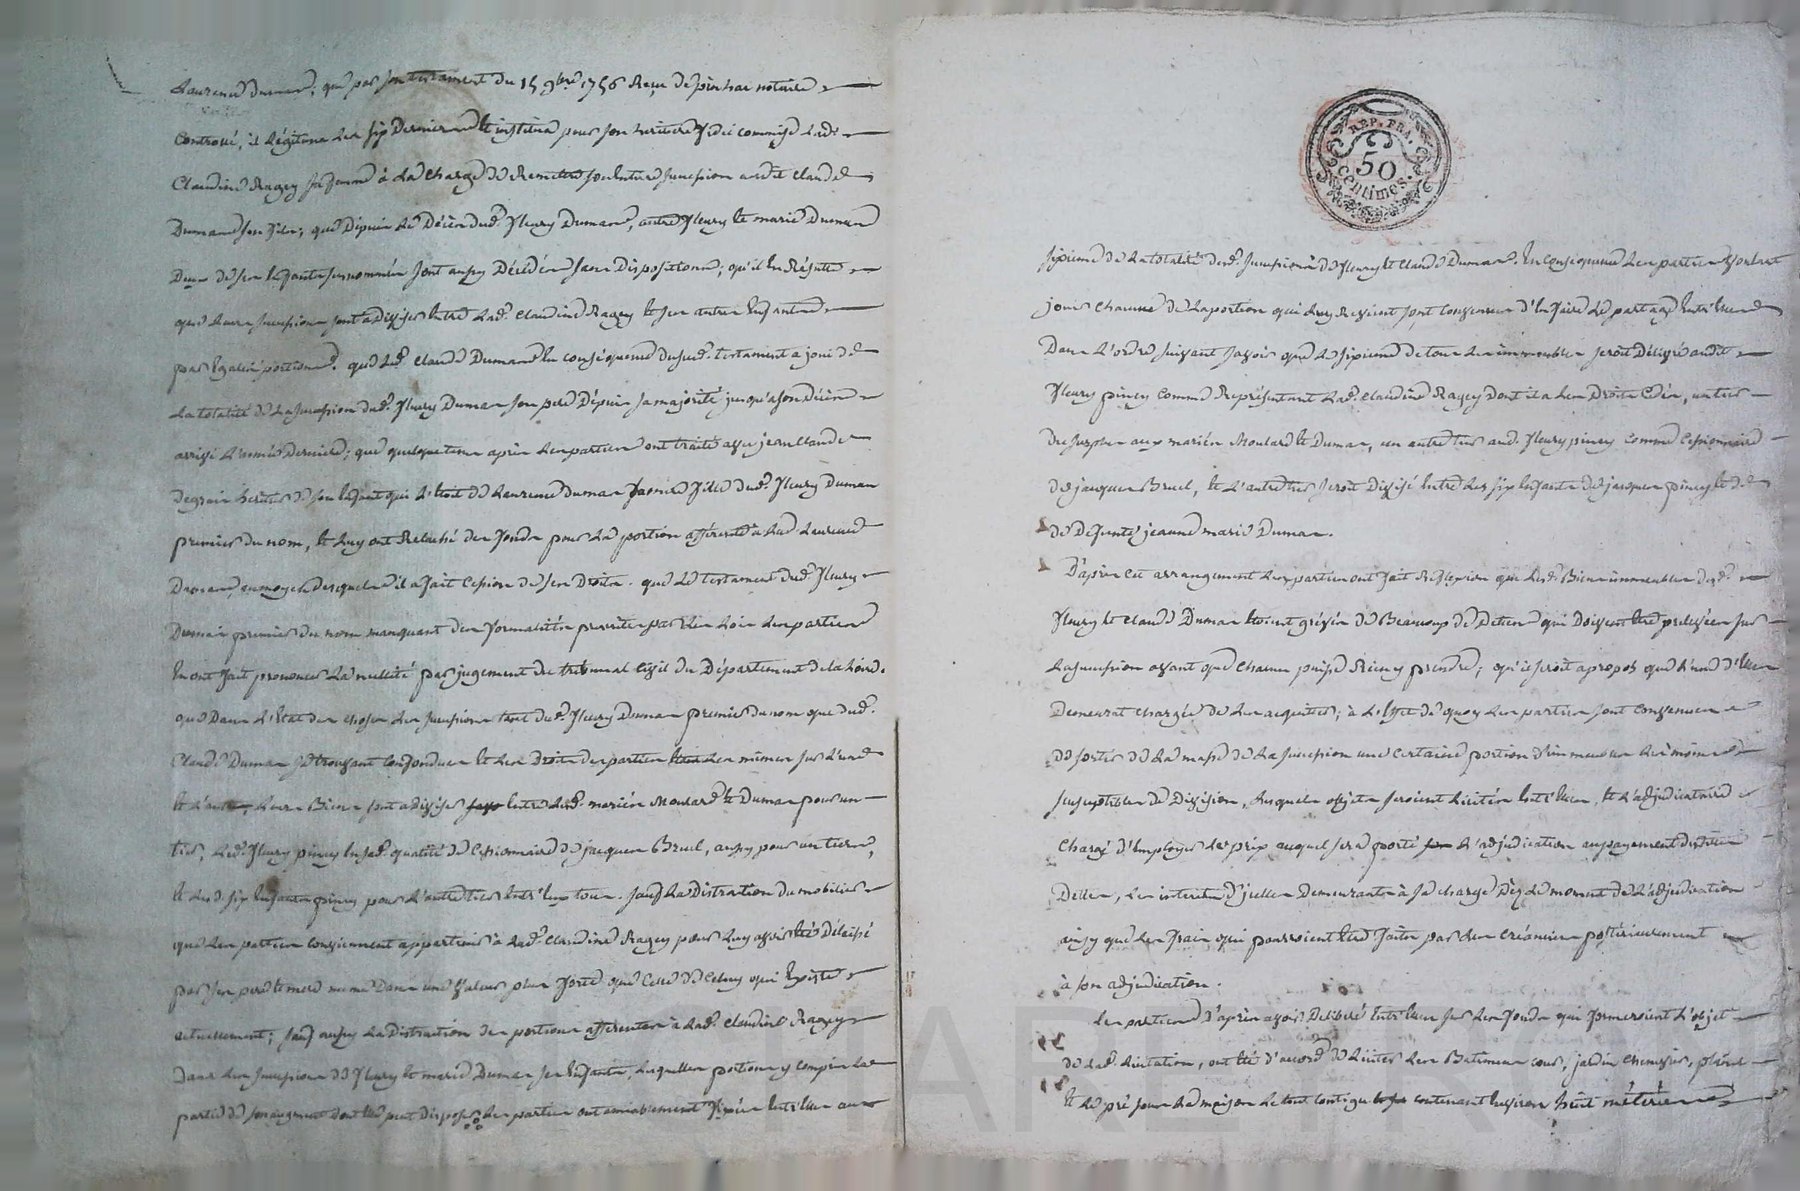 Laurence Dumas, que par son testament du 15 9bre 1756 Reçu depinhac notaire
Controllé, il légitime les six Derniers et institua pour son heritiere fidei commise lade
Claudine Ragey sa femme à la charge de Remettre son entiere succession audit Claude
Dumas son fils; que Depuis le Décès dud. fleury Dumas, autre fleury et marie Dumas
Deux de ses Enfants susnommés sont aussy Décédés sans Dispositions; qu'il En Résulte
que leurs successions sont à Diviser Entre lad. Claudine Ragey et ses autres Enfants
par Egales portions. que led. Claude Dumas En conséquence dusud. testament a joui de
la totalité de la succession dud. fleury Dumas son pere Depuis sa majorité jusqu'a son Décès
arrivé l'année Derniere; que quelque tems après les parties ont traité avec jean Claude
degrain heritier de son Enfant qui l'étoit de Laurence dumas fille dud. fleury Dumas
premier du nom, et luy ont Relaché des fonds pour la portion afférente à lad. Laurence
Dumas, au moyen desquels il a fait Cession de ses Droits. que le testament dud. fleury
Dumas premier du nom manquant des formalités prescrites par les Loix les parties
En ont fait prononcer la nullité par jugement du tribunal Civil du Département de la Loire.
que Dans l'état des choses les successions tant dud. fleury Dumas premier du nom que dud.
Claude Dumas se trouvant confondues et les Droits des parties étant les mêmes sur l'une
et l'autre, leurs Biens sont à diviser Entre lesd. mariés Moulard et Dumas pour un
tiers, led. fleury piney En sad. qualité de Cessionnaire de jacques Bruel, aussy pour un tiers,
et lesd. six Enfants piney pour l'autre tiers Entr'Eux tous. sauf la Distraction du mobilier
que les parties conviennent appartenir à lad. Claudine Ragey pour luy avoir été Délaissé
par ses pere et mere même Dans une valeur plus forte que Celle de Celuy qui Existe
actuellement; sauf aussy la Distraction des portions afferentes à lad. Claudine Ragey
dans les successions de fleury et marie Dumas ses Enfants, lesquelles portions y compris la
partie de son augment dont elle peut disposer les parties ont amiablement fixées Entr'Eux au
REP. FRA.
50
centimes.
sixieme de la totalité desd. successions de fleury et Claude Dumas. En conséquence les parties voulant
jouir chacune de la portion qui luy Revient sont convenues d'En faire le partage Entr'Eux
Dans l'ordre suivant savoir que le sixieme de tous les immeubles seroit Délivré audit
fleury piney comme Représentant lad. Claudine Ragey dont il a les Droits Cédés, un tiers
du surplus aux mariés Moulard et Dumas, un autre tiers aud. fleury piney comme Cessionnaire
de jacques Bruel, et l'autre tiers seroit Divisé Entre les six Enfants de jacques piney et de
de Defunte jeanne marie Dumas.
D'après cet arrangement les parties ont fait Réflexion que lesd. Biens immeubles desd.
fleury et Claude Dumas étoient grévés de Beaucoup de Dettes qui Doivent être prélevées sur
la succession avant que chacun puisse Rien y prendre; qu'il seroit apropos que l'une d'Elles
Demeurat chargée de les acquitter; à l'Effet de quoy les parties sont convenues
de sortir de la masse de la succession une certaine portion d'immeubles les moins
susceptibles de Division, lesquels objets seroient licités Entr'Eux, et l'adjudicataire
chargé d'Employer le prix auquel sera porté l'adjudication au payement desdites
Dettes, les interets d'icelles Demeurants à sa charge Dès le moment de l'adjudication
ainsy que les frais qui pourroient être faits par les créanciers postérieurement
à son adjudication.
les parties D'après avoir Délibéré Entr'Eux sur les fonds qui formeroient l'objet
de lad. licitation, ont été d'accord de liciter les Batiments cour, jardin chenevier,
et le pré sous la maison le tout contigu contenant Environ huit méterées